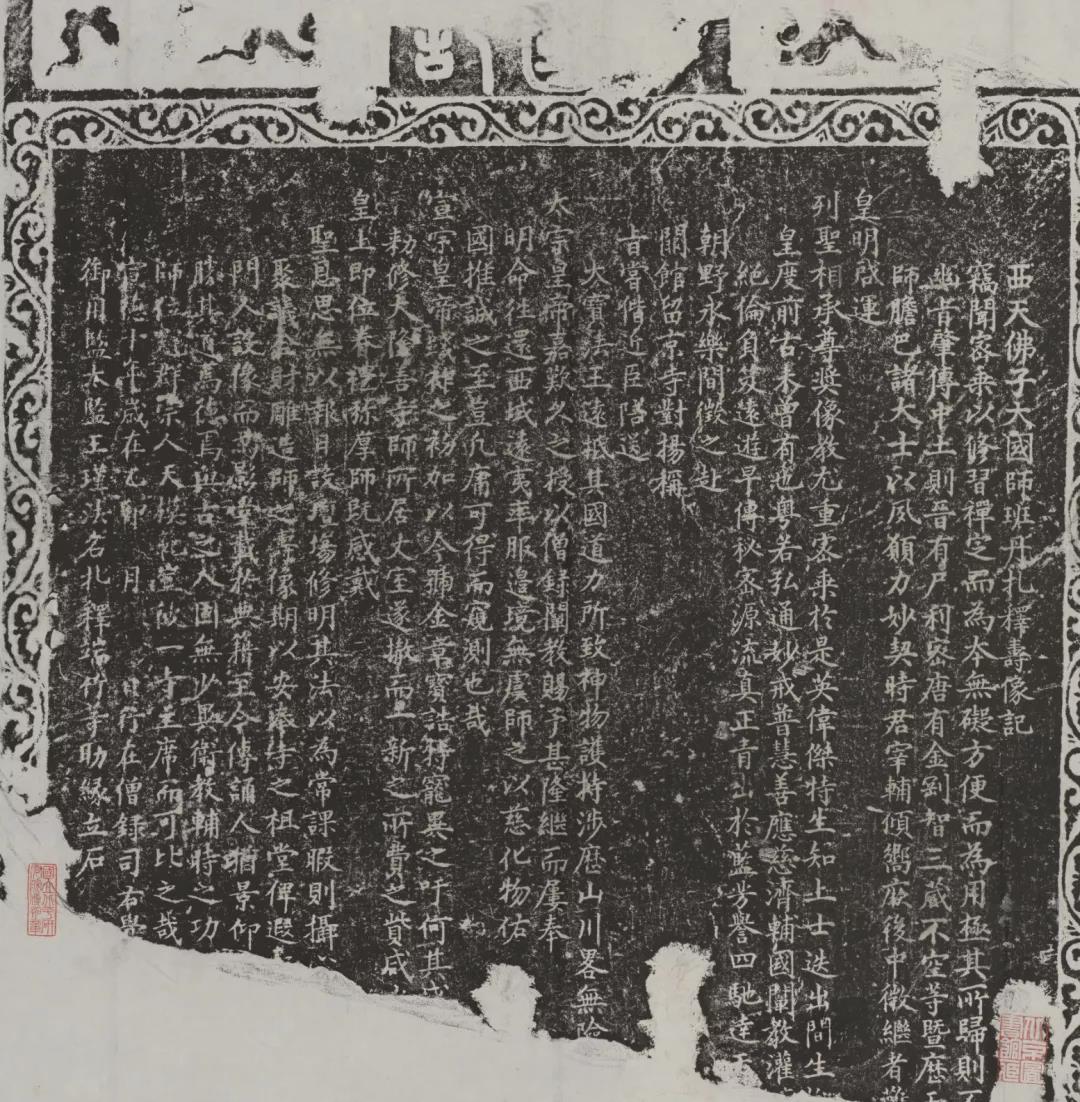 西天佛子大國師班丹扎釋壽像記
竊聞密乘以修習禪定而為本無礙方便而為用極其所歸則
幽旨肇傳中土則晉有尸利密唐有金剛智三藏不空等暨歷
師膽巴諸大士以夙願力妙契時君宰輔傾嚮厥後中微繼者
皇明啓運
列聖相承尊奬像教尤重密乘於是英偉傑特生知上士迭出間生
皇度前古未曾有也粤若弘通妙戒普慧善應慈濟輔國闡教灌
絶倫負笈遠遊早傳秘密源流真正青出於藍芳譽四馳達
朝野永樂間徵之赴
闕館留京寺對揚稱
旨嘗偕近臣隨送
大寶法王遠抵其國道力所致神物護持涉歷山川畧無險
太宗皇帝嘉歎久之授以僧錄闡教賜予甚隆繼而屢奉
明命往還西域遠夷率服邊境無虞師之以慈化物佑
國推誠之至豈凡庸可得而窺測也哉
宣宗皇帝成禅之初加以今號金章寶誥特寵異之吁何其
勅修大隆善寺師所居丈室遂撤而一新之所費之貲咸
皇上即位眷禮彌厚師既感戴
聖恩思無以報日設壇場修明其法以為常課暇則攝
聚財雕造師之壽像期以安奉寺之祖堂俾遐
門人設像而 載於典籍至今傳誦人猶景仰
勝其道焉德焉與古之人固無少異衛教輔時之功
師位 宗人天 一寺主席而可比之哉
宣德十年歲在乙卯 月 日行在僧錄司右覺
御用監太監王瑾法名扎釋端竹等助緣立石